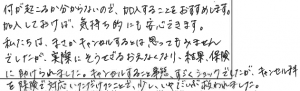 何が起こるか分からないので、加入することをおすすめします。
加入しておけば、気持ち的にも安心できます。
私たちは、まさかキャンセルするとは思ってもみません
でしたが、実際にそうせざるおえなくなり、結果、保険
に助けられました。キャンセルすること自体、すごくショックでしたが、キャンセル料
を保険で対応いただけたことで、少し、いやだいぶ救われました。